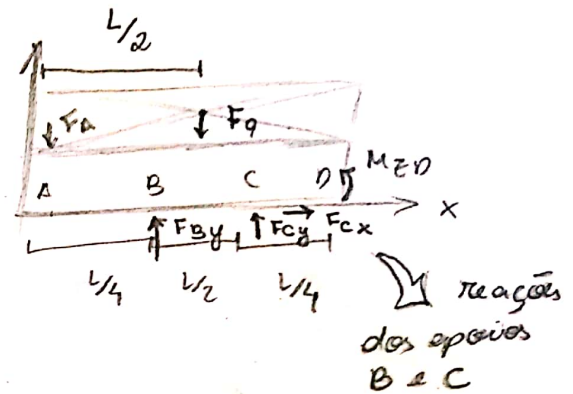 L/2
FA
Fq
MZD
A B C D
x
FBy FCy FCx
L/4 L/2 L/4
reações
dos apoios
B e C